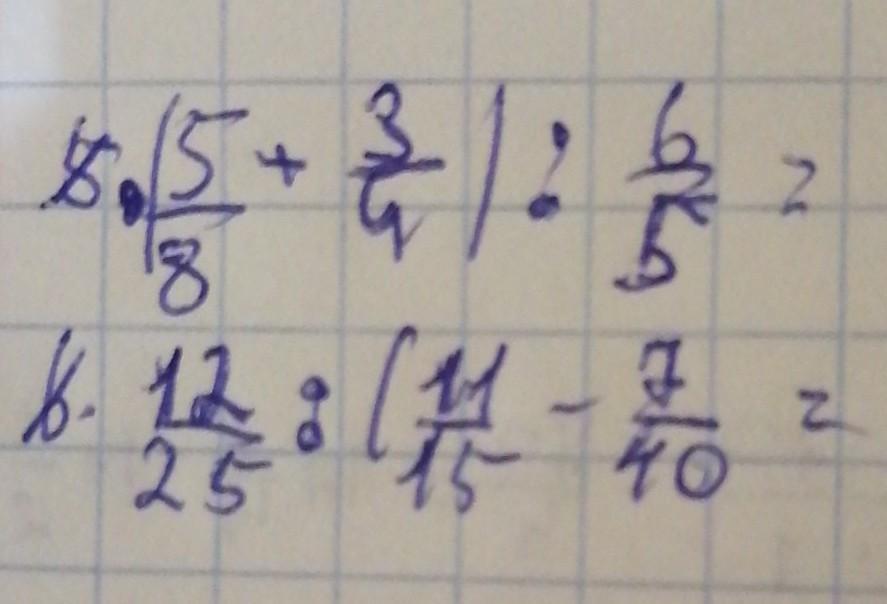 5. (5/8 + 3/4) : 6/5 =
6. 12/25 : (11/15 - 7/40 =